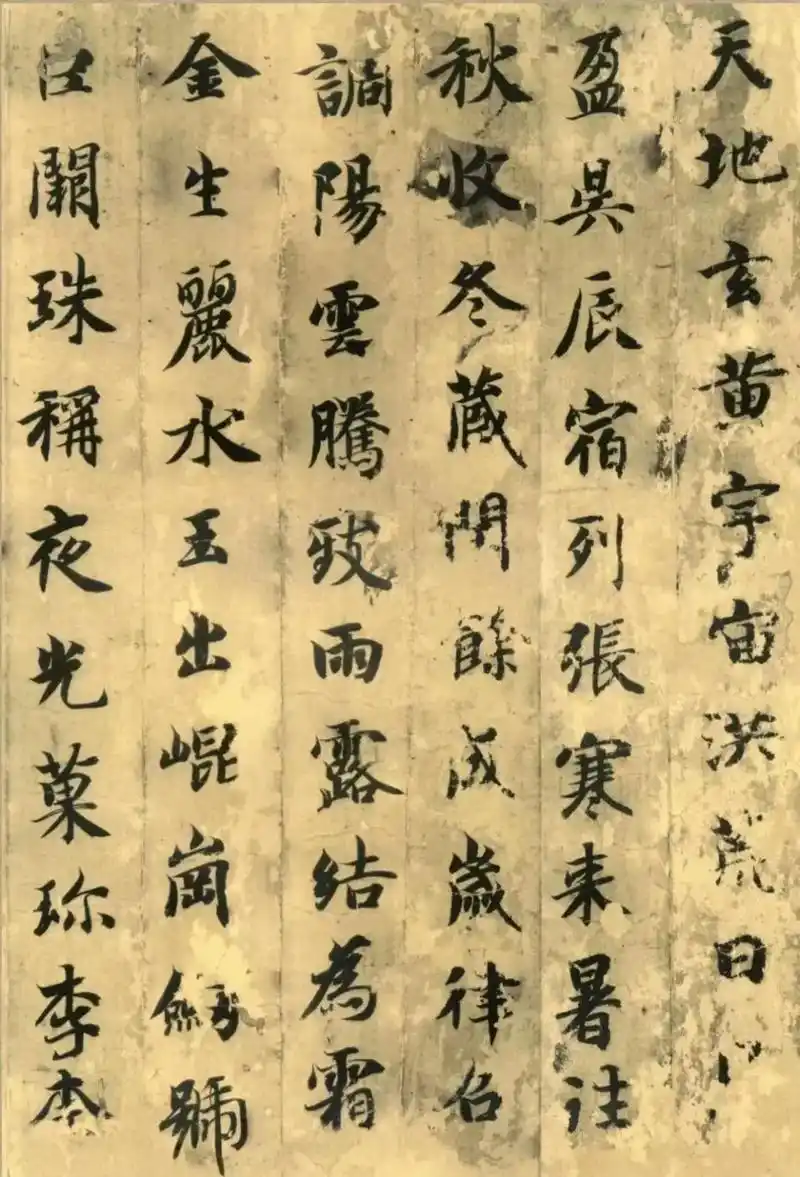 天地玄黄宇宙洪荒日
盈昃辰宿列張寒来暑往
秋收冬蔵閏餘成歳律吕
調陽雲騰致雨露結為霜
金生麗水玉出崐崗劒號
巨闕珠稱夜光菓珎李柰